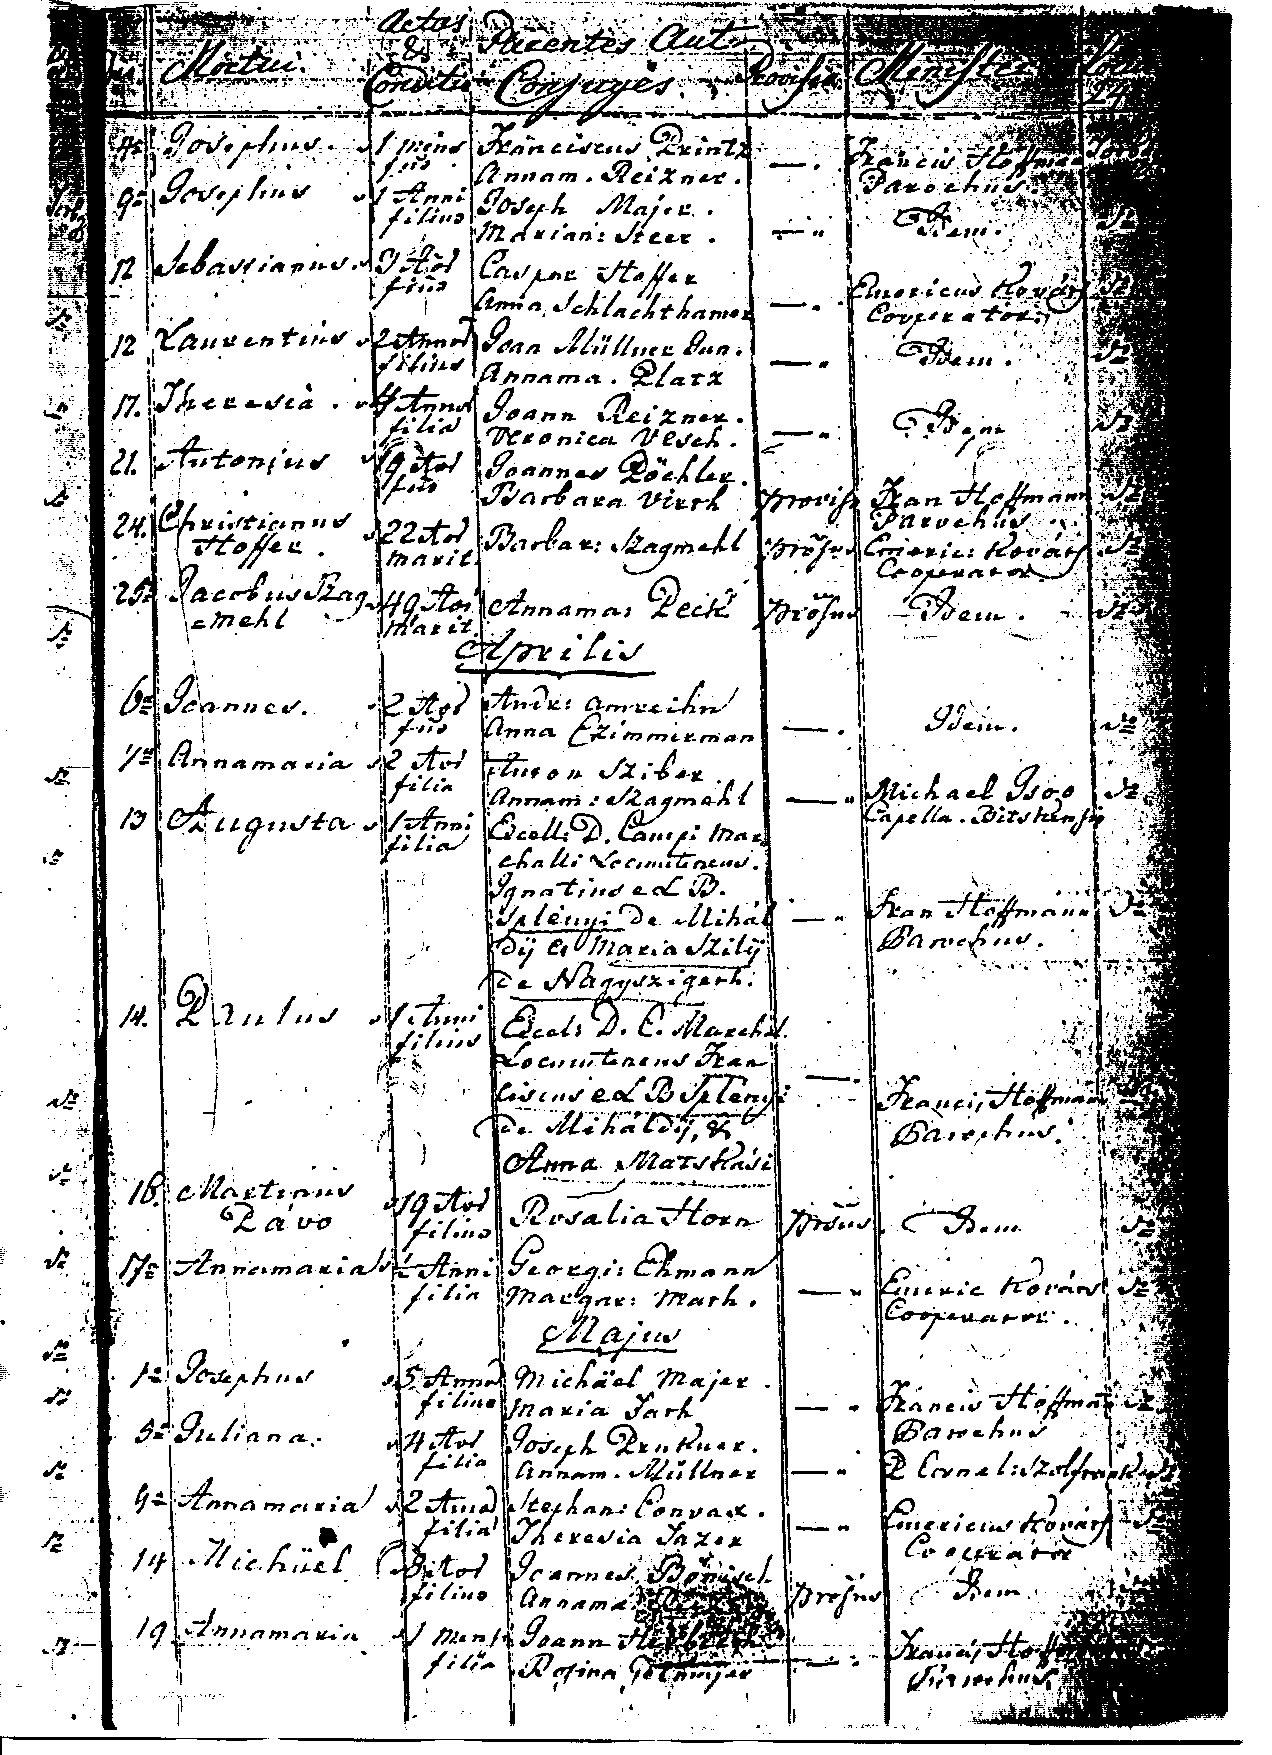 Mortui. Aetas & Conditio Parentes Aut Conjuges. Provisio Minister
Josephus. 1 mens fius Franciscus Printz Annam. Reizner. —. Francis Hoffman Parochus.
9a Josephus 1 Anni filius Joseph Majer. Marian: Steer. —. Idem. Sz
12 Sebastianus 3 Aor fius Caspar Hoffer Anna Schlachthamer —. Emericus Kovács Cooperator. Sz
12 Laurentius 2 Annor filius Joan Müllner Jun. Annama. Platz —. Idem. Sz
17. Theresia. 4 Annor filia Joann Reizner. Veronica Vesch. —. Idem Sz
21. Antonius 19 Aor fius Joannes Pöchler. Barbara Virth Provis Fran Hoffmann Parochus Sz
24. Christianus Hoffer. 22 Aor marit. Barbar: Szagmehl Prösus Emeric: Kovács Cooperator Sz
25a Jacobus Szag =mehl 49 Aor marit. Annama: Peck Prösus Idem. Sz
Aprilis
6a Joannes. 2 Aor fius Andr: Amreihn Anna Czimmerman —. Idem. Sz
7a Annamaria 2 Aor filia Anton Sziber. Annam: Szagmehl —. Michael Isoo Capella. Bitskensis Sz
13 Augusta 1 Anni filia Excell: D. Campi Mar
challi Locumtenens.
Ignatius e L B.
Splényi de Mihál — Fran Hoffmann Parochus. Sz
dÿ & Maria Szilÿ
de Nagyszigeth.
14. Paulus 1 Anni filius Excel: D. C. Marchal.
Locumtenens Fran
ciscus e L B Splenyi —. Francis Hoffman Parochus.
de Miháldÿ, &
Anna Matskási
16. Martinus Pávo 19 Aor filius Rosalia Horn Prösus Idem Sz
17a Annamaria ½ Anni filia Georgi: Ehmann Margar: Math. —. Emeric Kovács Cooperator. Sz
Majus
1a Josephus 5 Annor filius Michäel Majer. Maria Jath —. Francis Hoffman Parochus Sz
5a Juliana. 4 Aor filia Joseph Prukner. Annam. Müllner —. P Cornel: Sz
9a Annamaria 2 Annor filia Stephan: Conrad. Theresia Jazer —. Emericus Kovács Cooperator Sz
14 Michäel 3 Aor filius Joannes Bönisch Annama: Prösus Idem
19. Annamaria 1 Mens filia Joann Rosina —. Francis Hoffman Parochus.